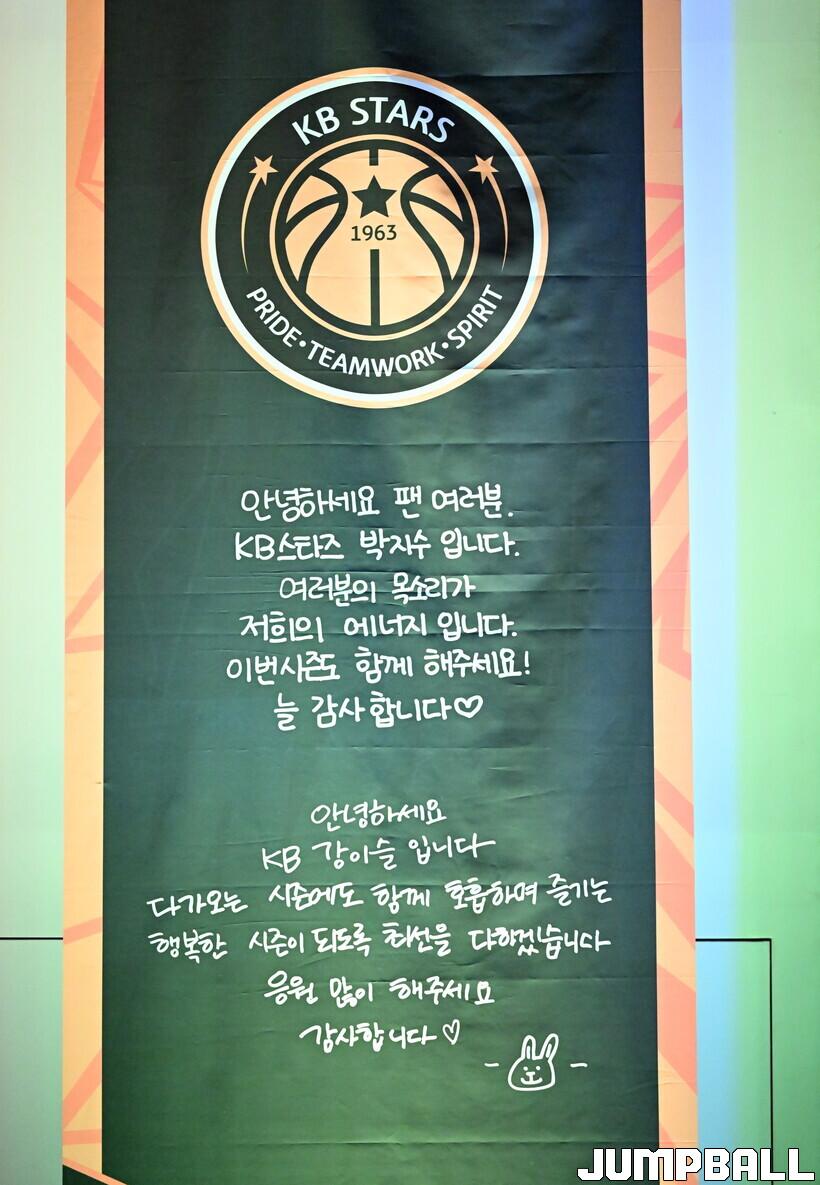 KB STARS
1963
PRIDE•TEAMWORK•SPIRIT
안녕하세요 팬 여러분.
KB스타즈 박지수 입니다.
여러분의 목소리가
저희의 에너지 입니다.
이번시즌도 함께 해주세요!
늘 감사합니다♡
안녕하세요
KB 강이슬 입니다
다가오는 시즌에도 함께 호흡하며 즐기는
행복한 시즌이 되도록 최선을 다하겠습니다
응원 많이 해주세요
감사합니다♡
JUMPBALL